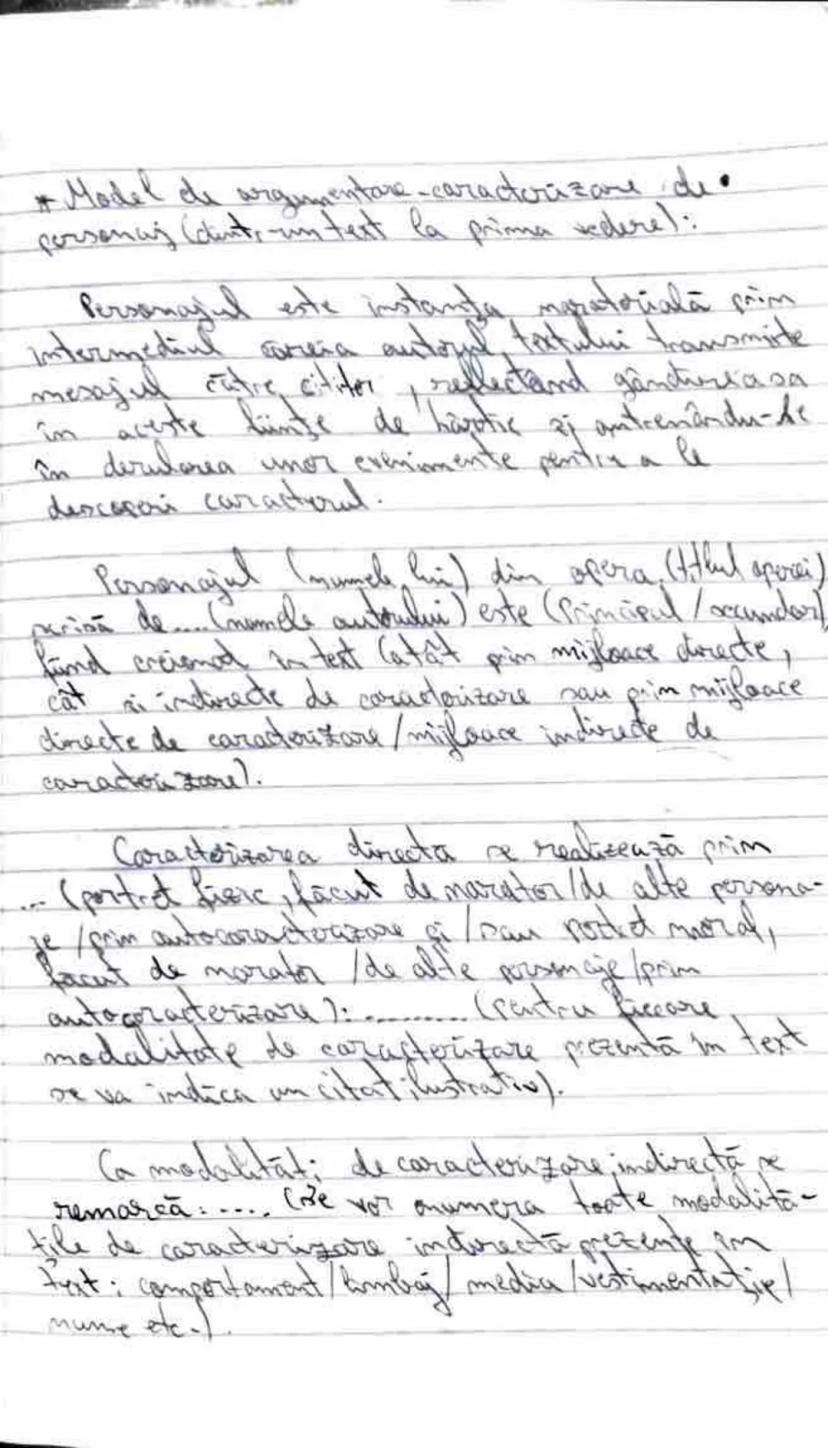 * Model de argumentare-caracterizare de
personaj (dintr-un text la prima vedere):
Personajul este instanța naratorială prin
intermediul căreia autorul textului transmite
mesajul către cititor, reflectând gândirea sa
în aceste ființe de hârtie și antrenându-le
în derularea unor evenimente pentru a le
descoperi caracterul.
Personajul (numele lui) din opera (titlul operei)
scrisă de .... (numele autorului) este (principal/secundar),
fiind creionat în text (atât prin mijloace directe,
cât și indirecte de caracterizare sau prin mijloace
directe de caracterizare/mijloace indirecte de
caracterizare).
Caracterizarea directă se realizează prin
... (portret fizic, făcut de narator/de alte persona-
je/prin autocaracterizare și/sau portret moral,
făcut de narator/de alte personaje/prin
autocaracterizare): .......... (pentru fiecare
modalitate de caracterizare prezentă în text
se va indica un citat ilustrativ).
Ca modalități de caracterizare indirectă se
remarcă: .... (Se vor enumera toate modalită-
țile de caracterizare indirectă prezente în
text: comportament/limbaj/mediu/vestimentație/
nume etc.).